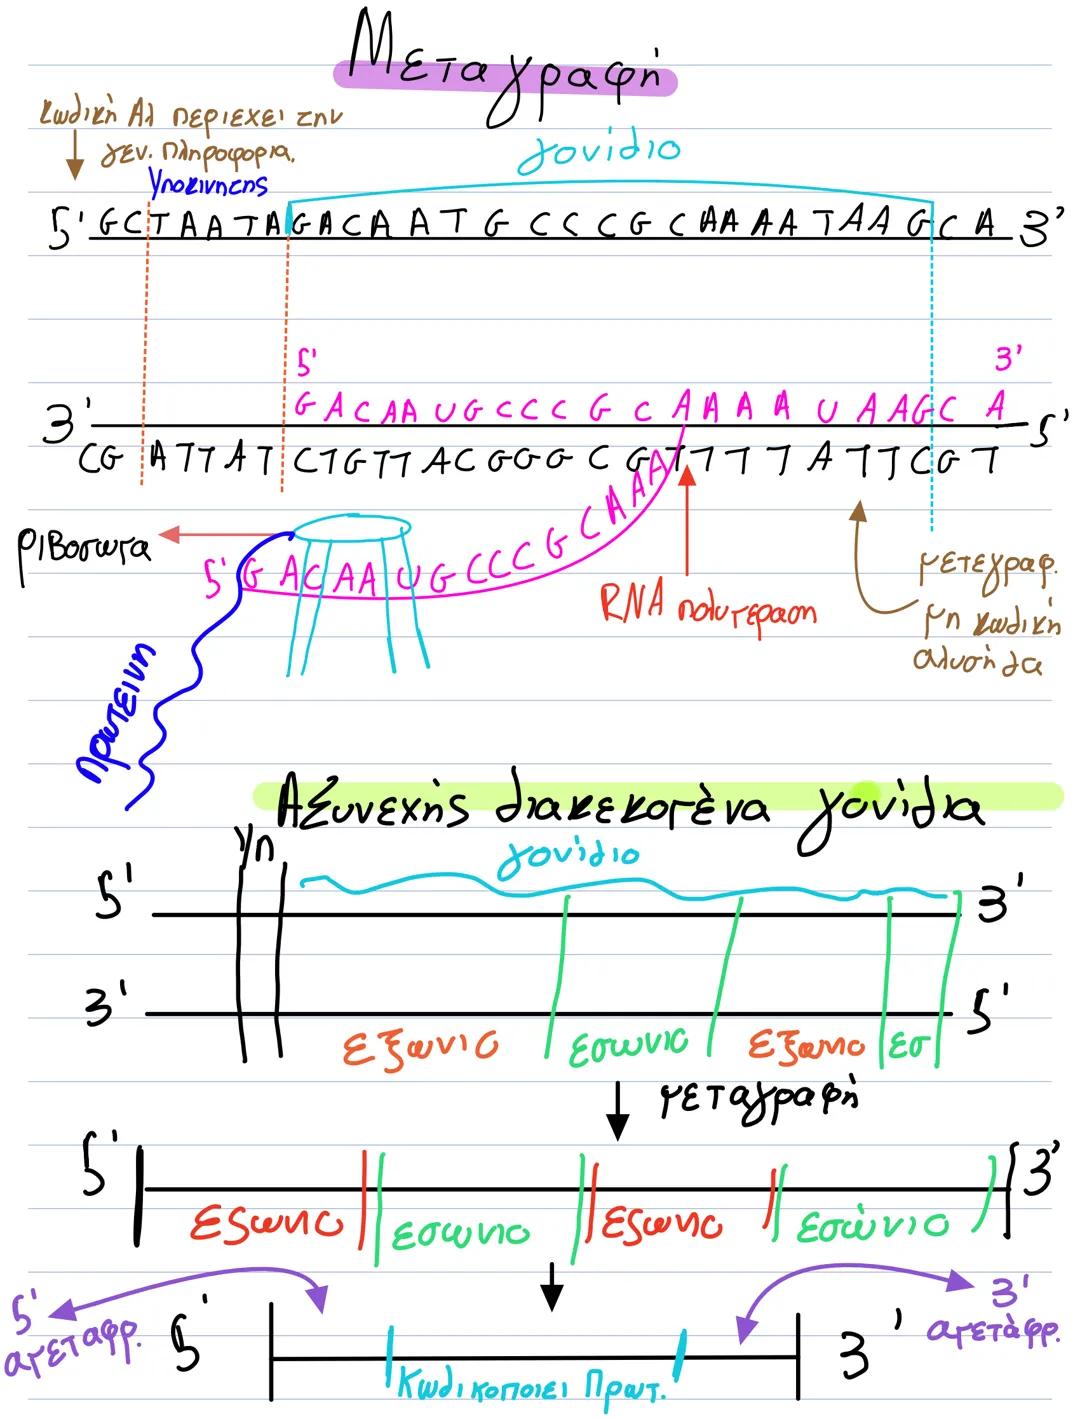 Μεταγραφή
κωδική Αλ περιεχει την
γεν. πληροφορια.
Υποκινητης
γονίδιο
5' GCTAATAGACAATGCCCGCAAAATAAGCA 3'
5' 3'
GACAAUGCCCGCAAAAUAAGCA
3' 5'
CGATTATCTGTTACGGGCGTTTTATTCGT
5' GACAAUGCCCGCAAA
ριβοσωμα
RNA πολυμεραση
μετεγραφ.
μη κωδική
αλυσήδα
πρωτεινη
Αξυνεχής διακεκομένα γονίδια
γονίδιο
Υπ
5' 3'
3' 5'
εξωνιο εσωνιο εξωνιο εσ
μεταγραφή
5' 3'
εξωνιο εσωνιο εξωνιο εσώνιο
5' αμεταφρ.
5' 3'
3' αμετάφρ.
Κωδικοποιει Πρωτ.